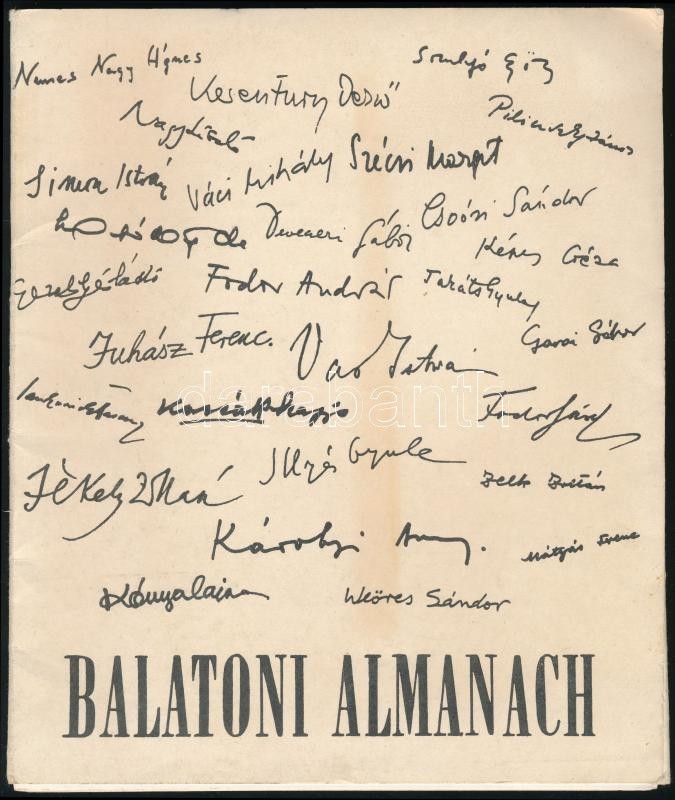 Nemes Nagy Ágnes
Somlyó György
Keresztury Dezső
Pilinszky János
Nagy László
Simon István
Váci Mihály
Szécsi Margit
Devecseri Gábor
Csoóri Sándor
Képes Géza
Fodor András
Takáts Gyula
Juhász Ferenc.
Vas István
Garai Gábor
Kassák Lajos
Fodor József
Illyés Gyula
Jékely Zoltán
Zelk Zoltán
Károlyi Amy.
Mátyás Ferenc
Kónya Lajos
Weöres Sándor
darabanth
BALATONI ALMANACH